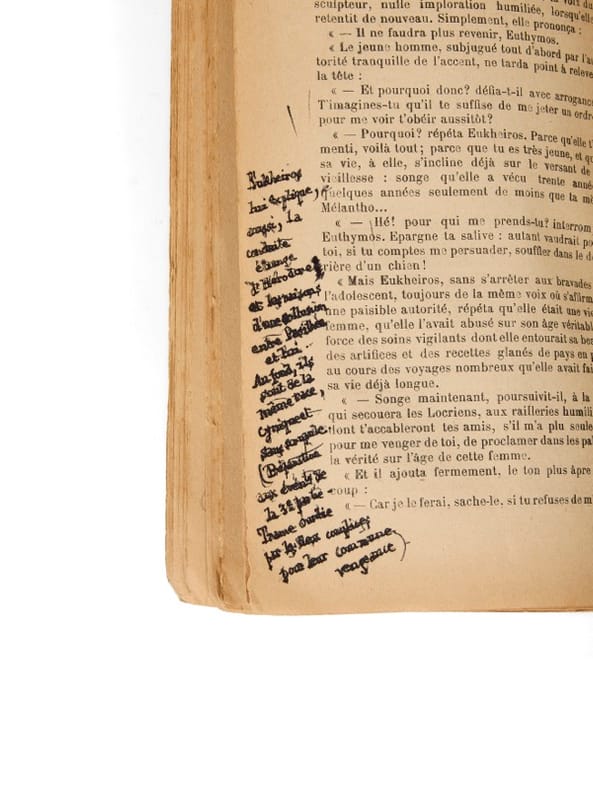 sculpteur, nulle imploration humiliée, lorsqu'elle
retentit de nouveau. Simplement, elle prononça :
« — Il ne faudra plus revenir, Euthymos.
« Le jeune homme, subjugué tout d'abord par l'au
torité tranquille de l'accent, ne tarda point à releve
la tête :
« — Et pourquoi donc? défia-t-il avec arroganc
T'imagines-tu qu'il te suffise de me jeter un ordre
pour me voir t'obéir aussitôt?
« — Pourquoi? répéta Eukheiros. Parce qu'elle t'
menti, voilà tout; parce que tu es très jeune, et qu
sa vie, à elle, s'incline déjà sur le versant de
vieillesse : songe qu'elle a vécu trente anné
quelques années seulement de moins que ta mè
Mélantho...
« — Hé! pour qui me prends-tu? interrom
Euthymos. Epargne ta salive : autant vaudrait po
toi, si tu comptes me persuader, souffler dans le de
rière d'un chien!
« Mais Eukheiros, sans s'arrêter aux bravades
l'adolescent, toujours de la même voix où s'affirm
une paisible autorité, répéta qu'elle était une vie
femme, qu'elle l'avait abusé sur son âge véritable
force des soins vigilants dont elle entourait sa bea
des artifices et des recettes glanés de pays en p
au cours des voyages nombreux qu'elle avait fai
sa vie déjà longue.
« — Songe maintenant, poursuivit-il, à la
qui secouera les Locriens, aux railleries humili
dont t'accableront tes amis, s'il m'a plu seule
pour me venger de toi, de proclamer dans les pa
la vérité sur l'âge de cette femme.
« Et il ajouta fermement, le ton plus âpre
coup :
« — Car je le ferai, sache-le, si tu refuses de m
Eukheiros
lui explique,
aussi, la
conduite
étrange
de
et les raisons
d'une collusion
entre
et lui...
Au fond, ils
sont de la
même race,
cynique et
sans scrupule
(Préparation
aux évènts de
la 3e partie
Trame ourdie
par les deux complices
pour leur commune
vengeance)